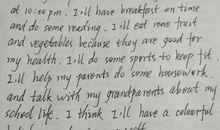 at 10:00 pm. I'll have breakfast on time
and do some reading. I'll eat more fruit
and vegetables because they are good for
my health. I'll do some sports to keep fit.
I'll help my parents do some housework
and talk with my grandparents about my
school life. I think I will have a colourful